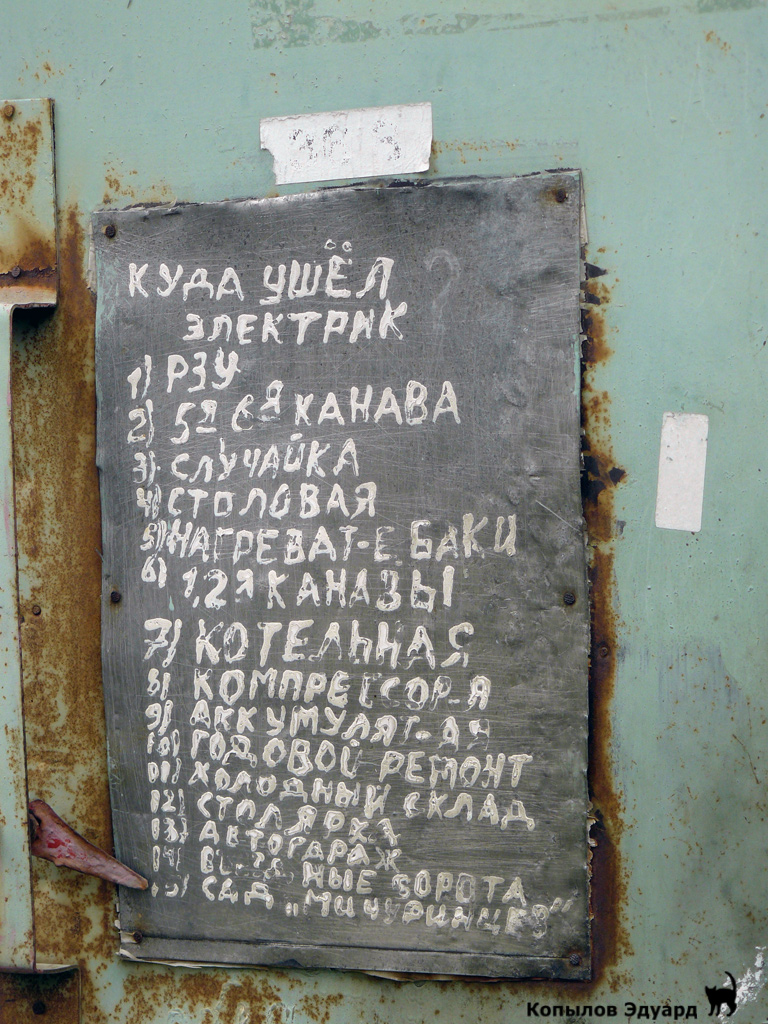 КУДА УШЁЛ ?
ЭЛЕКТРИК
1) РЗУ
2) 5Я 6Я КАНАВА
3) СЛУЧАЙКА
4) СТОЛОВАЯ
5) НАГРЕВАТ-Е БАКИ
6) 1,2Я КАНАВЫ
7) КОТЕЛЬНАЯ
8) КОМПРЕССОР-Я
9) АККУМУЛЯТ-АЯ
10) ГОДОВОЙ РЕМОНТ
11) ХОЛОДНЫЙ СКЛАД
12) СТОЛЯРКА
13) АВТОГАРАЖ
14) ВЪЕЗДНЫЕ ВОРОТА
15) САД „МИЧУРИНЦЕВ"
Копылов Эдуард